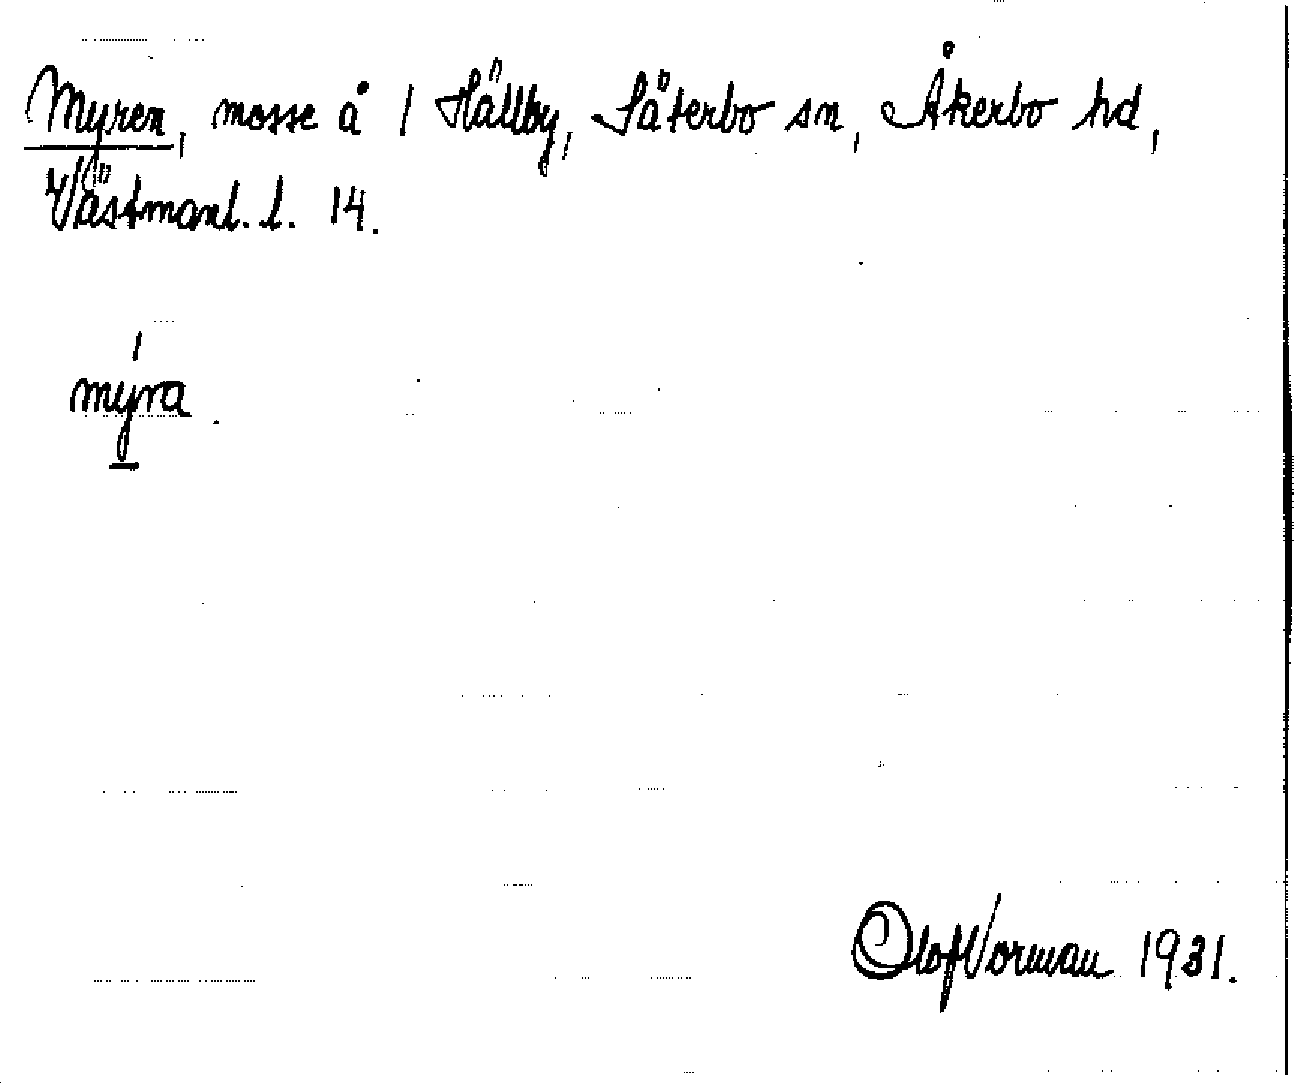 Myren, mosse å 1 Hällby, Säterbo sn, Åkerbo hd,
Västmanl. l. 14.
mýra
Olof Norman 1931.